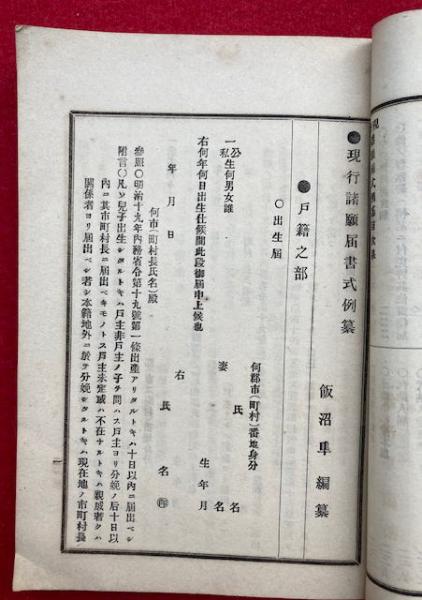 ●現行諸願屆書式例纂
飯沼 隼 編纂
●戸籍之部
○出生屆
何郡市(町村)番地身分
氏 名
妻 名
一公生何男女誰
私
生年月
右何年何日出生仕候間此段御屆申上候也
年 月 日
右 氏 名 ㊞
何市(町村長氏名)殿
參照○明治十九年内務省令第十九號第一條出產アリタルトキハ十日以内ニ屆出ベシ
附言○凡ソ兒子出生シタルトキハ戸主非戸主ノ子ヲ問ハス戸主ヨリ分娩ノ后十日以
内ニ其市町村長ニ屆出ベキモノトス戸主未定或ハ不在ナルトキハ親戚若クハ
關係者ヨリ屆出ベシ若シ本籍地外ニ於テ分娩シタルトキハ現在地ノ市町村長
一